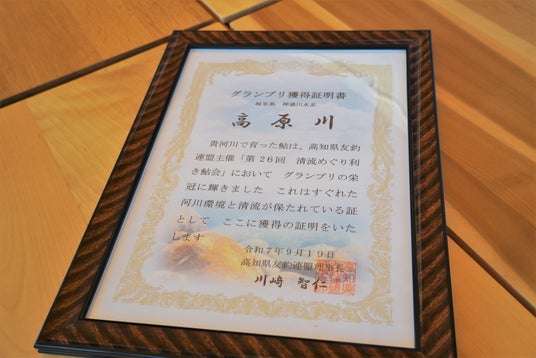 グランプリ獲得証明書
岐阜県　神通川水系
高原川
貴河川で育った鮎は、高知県友釣
連盟主催「第26回　清流めぐり利
き鮎会」において　グランプリの栄
冠に輝きました　これはすぐれた
河川環境と清流が保たれている証
として　ここに獲得の証明をいた
します
令和7年9月19日
高知県友釣連盟理事長
川﨑　智仁